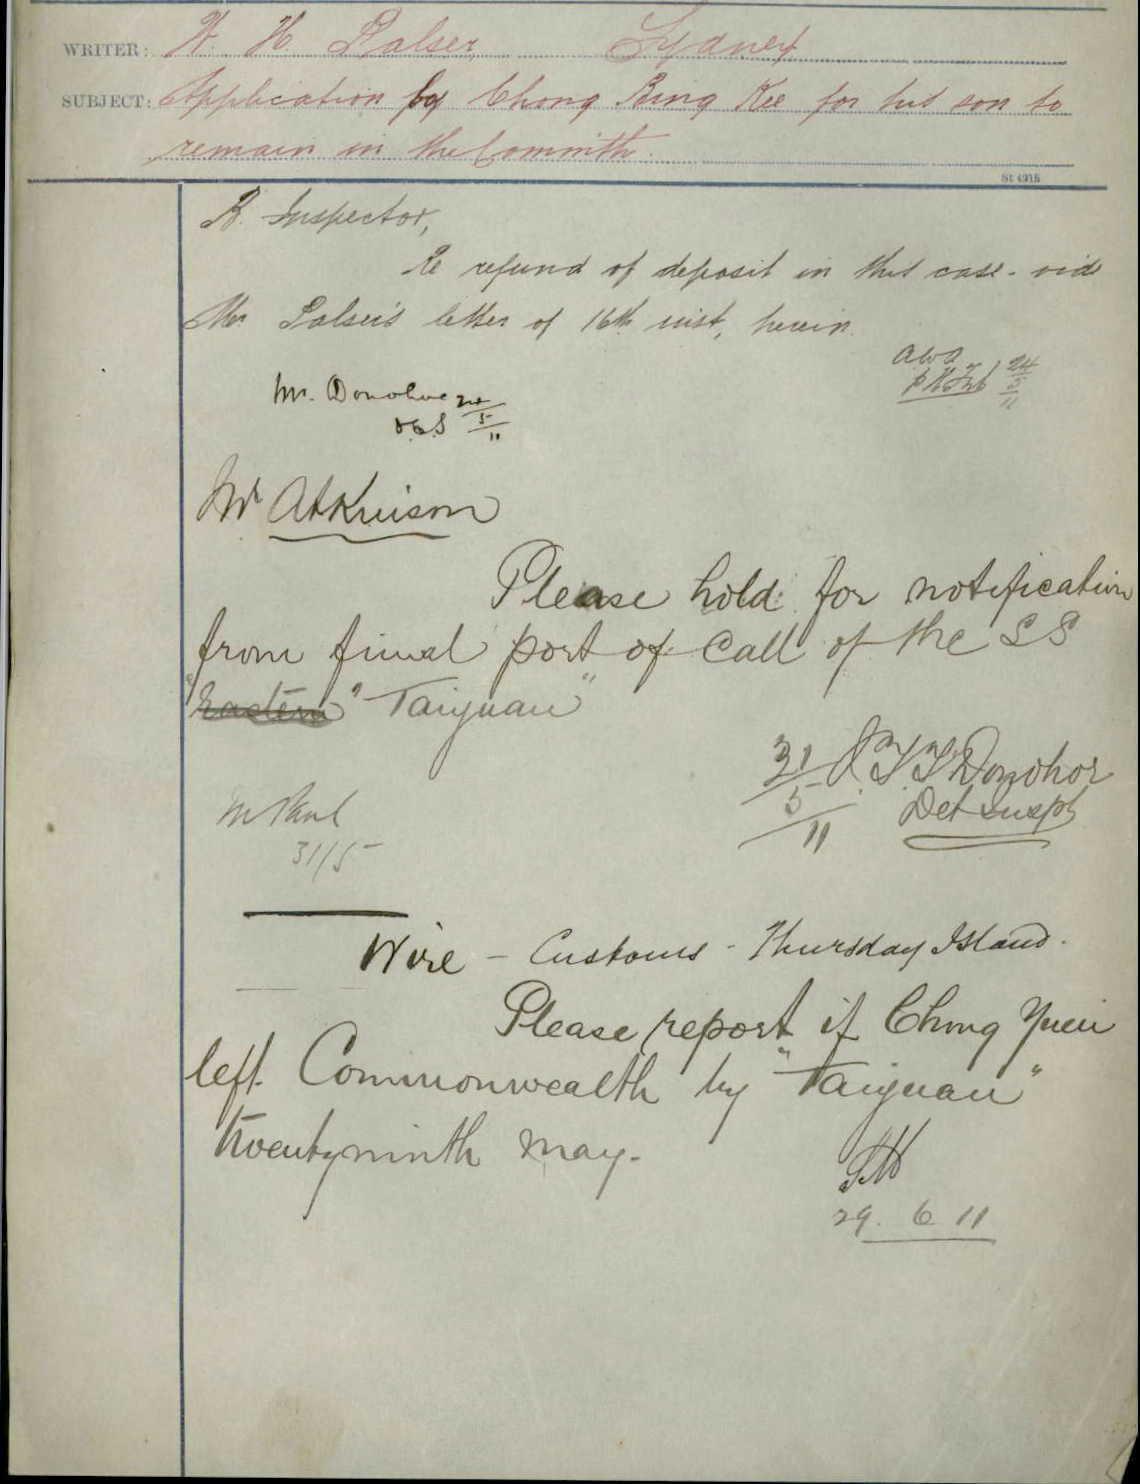 WRITER: W. H. Palser Sydney
SUBJECT: Application by Chong Bing Kee for his son to
remain in the Commlth.
St 4915
B. Inspector,
Re refund of deposit in this case - vide
Mr Palser's letter of 16th inst, herein.
24
5
11
Mr. Donohoe 24
5
11
Mr Atkinson
Please hold for notification
from final port of call of the SS
"Eastern" Taiyuan"
31 Donohoe
5 Det Inspr
11
31/5
Wire - Customs - Thursday Island.
Please report if Chong Yuen
left Commonwealth by "Taiyuan"
twentyninth May.
29. 6 11